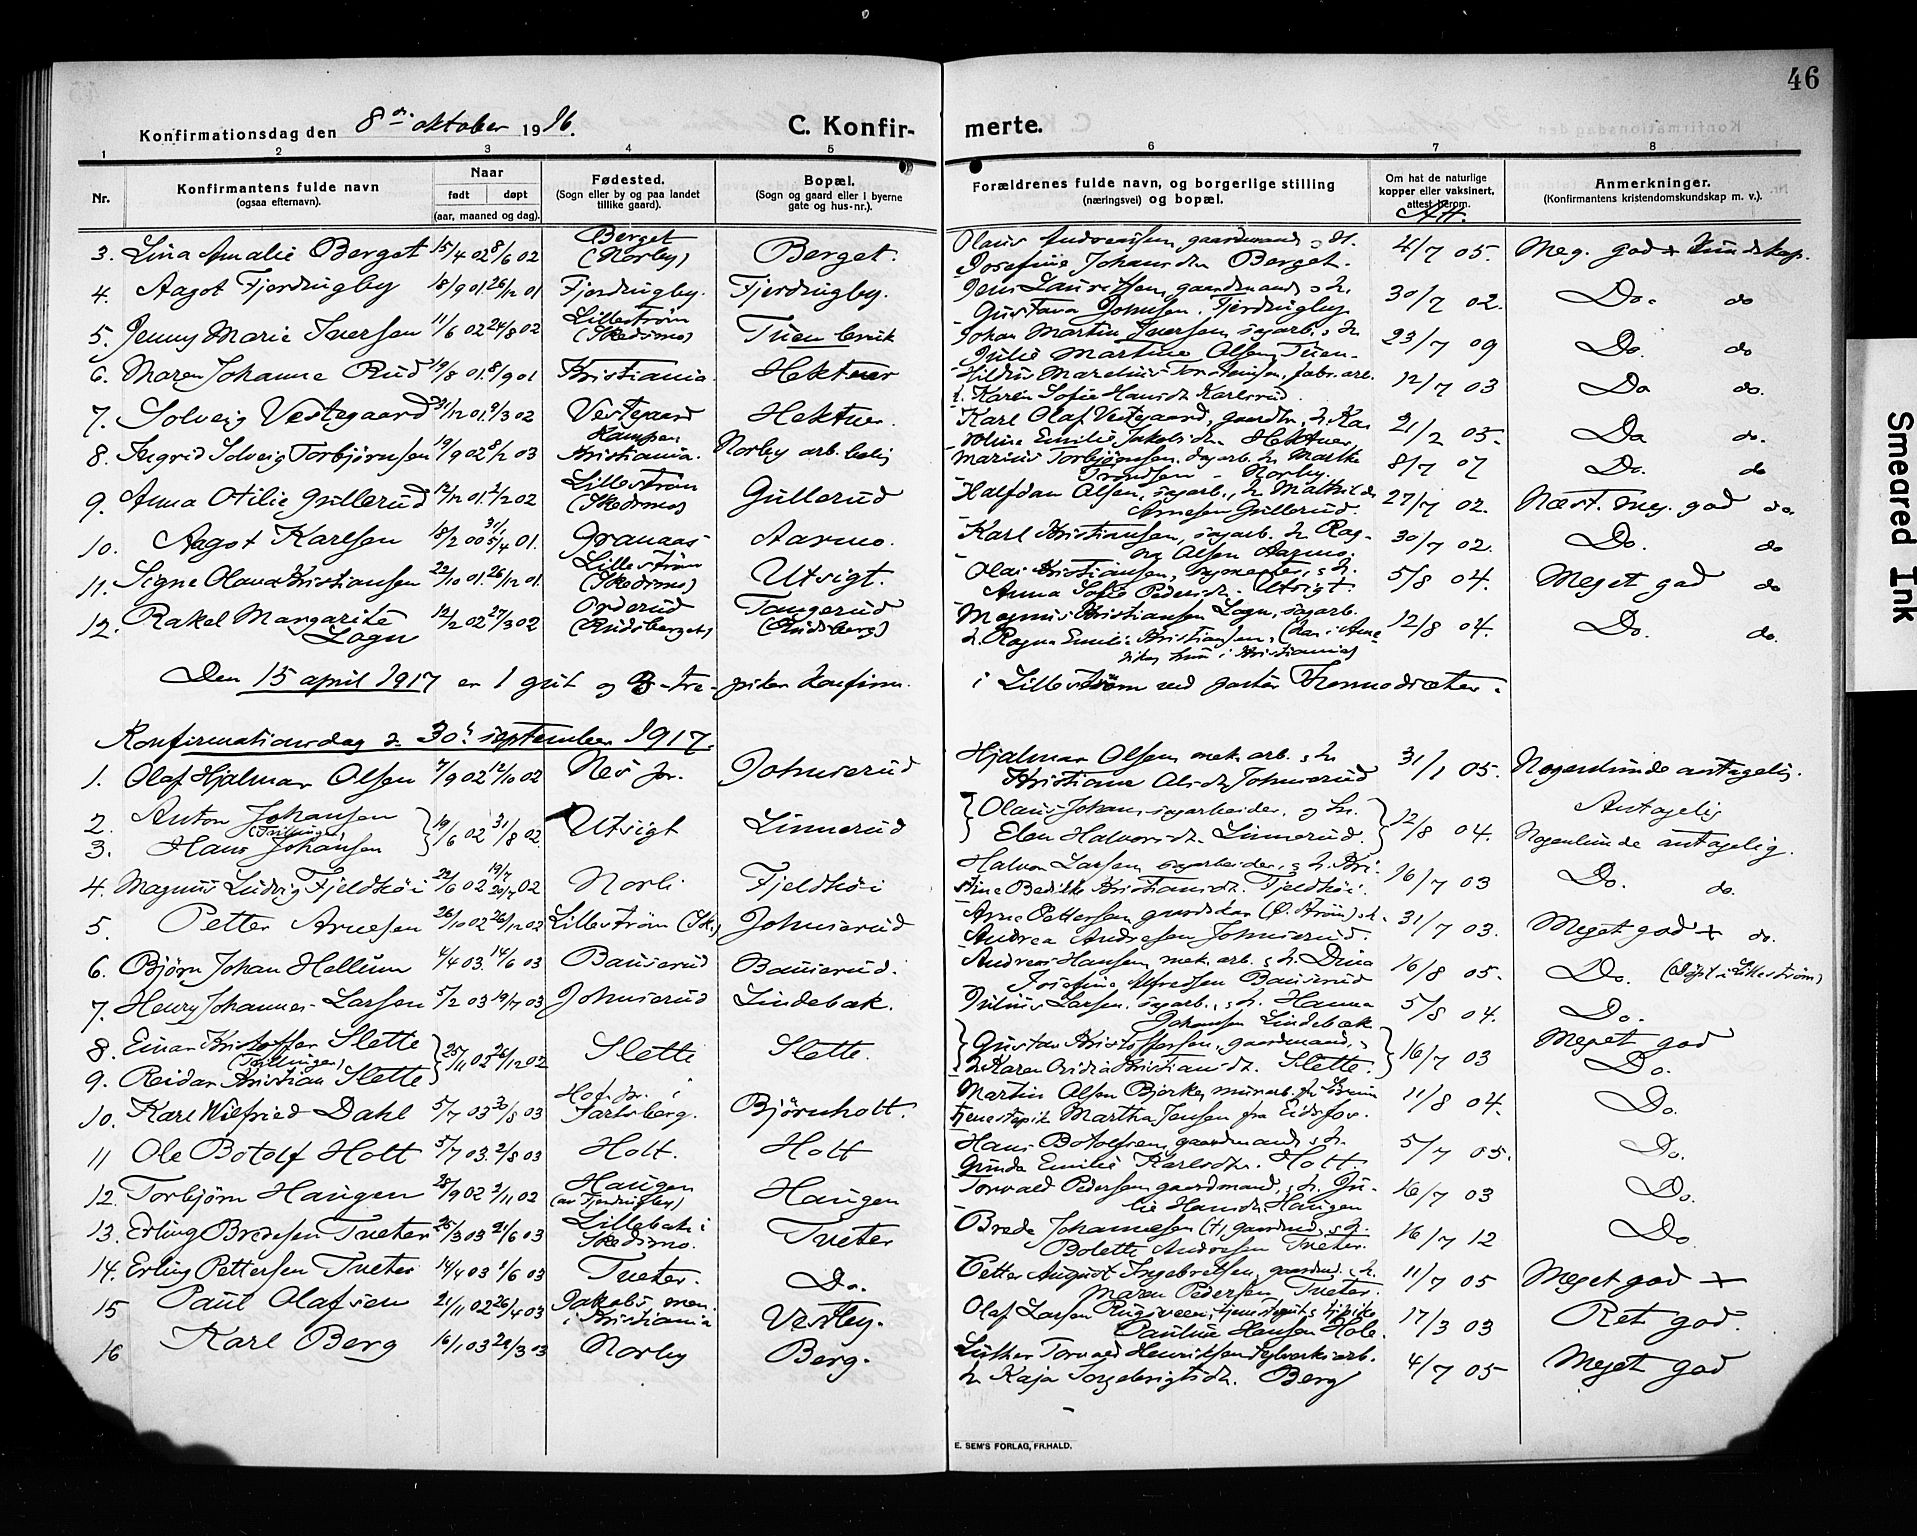 46
Konfirmationsdag den 8de oktober 1916. C. Konfirmerte.
1 2 3 4 5 6 7 8
Nr. Konfirmantens fulde navn (ogsaa efternavn). Naar født døpt (aar, maaned og dag). Fødested. (Sogn eller by og paa landet tillike gaard). Bopæl. (Sogn og gaard eller i byerne gate og hus-nr.). Forældrenes fulde navn, og borgerlige stilling (næringsvei) og bopæl. Om hat de naturlige kopper eller vaksinert, attest herom. Anmerkninger. (Konfirmantens kristendomskundskap m. v.).
Att.
3. Lina Amalie Berget 15/4 02 8/6 02 Berget (Norby) Berget. Olaus Andreassen, gaardmand, og h.
Josefine Johansdtr Berget. 4/7 05. Meg. god + Kundskap.
4. Aagot Fjerdingby 18/9 01. 26/12 01 Fjerdingby. Fjerdingby. Jens Lauritsen, gaardmand og h.
Gustava Johnsen. Fjerdingby 30/7 02. Do. do
5. Jenny Marie Iversen 11/6 02 24/8 02 Lillestrøm (Skedsmo) Tuen bruk Johan Martin Iversen, sagarb. og h.
Julie Martine Olsen, Tuen. 23/7 09 Do. do
6. Maren Johanne Rud 19/8 01. 8/9 01 Kristiania. Hektner Hildus Marelius Torstensen, fabr. arb.
f. Karen Sofie Hansdtr Karlsrud. 12/7 03 Do do.
7. Solveig Vestgaard 31/12 01. 9/3 02 Vestgaard Hektner. Karl Olaf Vestgaard, gaardbr., h. Karoline Emilie Jakobsdtr Hektner, 21/2 05. Do do.
8. Ingrid Solveig Torbjørnsen 19/9 02 8/2 03 Kampen, Kristiania. Norby arb. bolig Marius Torbjørnsen, dagarb. h. Marthe
Trondsen - Norby. 8/7 07 Do. do
9. Anna Otilie Gullerud 17/12 01. 2/2 02 Lillestrøm (Skedsmo) Gullerud Halfdan Olsen, sagarb., h. Mathilde
Arnesen Gullerud. 27/7 02. Næst. meg. god do.
10. Aagot Karlsen 18/2 00 31/5/4 01. Granaas Aarmo. Karl Kristiansen, sagarb. h. Ragna Olsen Aarmo. 30/7 02. Do. do
11. Signe Olava Kristiansen 22/10 01. 26/12 01. Lillestrøm (Skedsmo) Utsigt. Olai Kristiansen, bymester, og h.
Anna Sofie Pedersdtr. Utsigt. 5/8 04. Meget god do
12. Rakel Margarite Logn 12/2 02 27/3 02 Orderud (Rudsberget) Tangerud (Rudsberg) Magnus Kristiansen Logn, sagarb.
h. Ragna Emilie Kristiansen, (han i Amerika, hun i Kristiania) 12/8 04. Do. do.
Den 15 april 1917 er 1 gut og 3-tre-piker konfirm. i Lillestrøm ved pastor
Konfirmationsdag d. 30. september 1917.
1. Olaf Hjalmar Olsen 7/9 02 12/10 02 Nes pr. Johnsrud Hjalmar Olsen mek. arb. og h.
Kristiane Olsdtr Johnsrud 31/1 05. Nogenlunde antagelig.
2. Anton Johansen
(Tvillinger)
3. Hans Johansen } 19/6 02 31/8 02. Utsigt Linnerud { Olaus Johansen, sagarbeider, og h.
Elen Halvorsdtr. Linnerud. } 12/8 04. Antagelig
Nogenlunde antagelig.
4. Magnus Ludvig Fjeldhøi 22/6 02 19/7 20/7 02 Norli Fjeldhøi Halvor Larsen, sagarbeider, og h. Kristine Kristiansdtr. Fjeldhøi. 16/7 03 Do. do.
5. Petter Arnesen 26/10 02 26/12 02 Lillestrøm (Sk.) Johnsrud Arne Pettersen gaardskar (Ø. Strøm), h.
Andrea Andresen Johnsrud. 31/7 03. Meget god + do.
6. Bjørn Johan Hellum 4/4 03. 14/6 03 Bauserud Bauserud. Andreas Hansen, mek. arb. og h. Dina
Josefine Alfredsen Bauserud 16/8 05. Do. (Døpt i Lillestrøm)
7. Henry Johannes Larsen 5/2 03 19/7 03 Johnsrud Lindebak. Julius Larsen. sagarb., og h. Hanna
Johansen Lindebæk 5/8 04. Do.
8. Einar Kristoffer Slette
(Tvillinger)
9. Reidar Kristian Slette } 25/11 02 26/12 02 Slette Slette. { Gustav Kristoffersen, gaardmand, og
h. Karen Kristiansdtr. Slette. } 16/7 03 Meget god
Do.
10. Karl Wilfried Dahl 5/7 03 30/8 03 Hof pr. i Jarlsberg. Bjørnholt. Martin Olsen Bjørke, murarb. fra
tjenestepik Martha Jensen fra Eidsfos. 11/8 04. Do.
11 Ole Botolf Holt 5/7 03. 2/8 03 Holt. Holt Hans Botolfsen, gaardmand, og h.
Gunda Emilie Karlsdtr. Holt. 5/7 05. Do.
12. Torbjørn Haugen 28/9 02 2/11 02 Haugen (av Fjerdingby) Haugen Torvald Pedersen gaardmand, og h. Julie Hansdtr Haugen 16/7 03 Do.
13. Erling Bredesen Tveter 25/3 03 21/6 03 Lillebak i Skedsmo. Tveter Brede Johannesen (†), gaardmd, og h.
Bolette Andresen Tveter. 16/7 12 Do
14. Erling Pettersen Tveter 14/4 03 1/6 03 Tveter. Do. Petter August Ingebretsen, gaardmd. og h.
Maren Pedersen Tveter. 11/7 05 Meget god +
15 Paul Olafsen 21/11 02 26/4 03 Jakobs men. i Kristiania Vestby. Olaf Larsen Rugsveen, tjenestegut og tj.pike
Pauline Hansen Hole. 17/3 03 Ret god.
16 Karl Berg 16/1 03 29/3 03 Norby Berg. Luther Torvald Henriksen
h. Kaja Ingebrigtsdtr. Berg 4/7 05 Meget god
E. SEM'S FORLAG, FR.HALD.
Smeared Ink